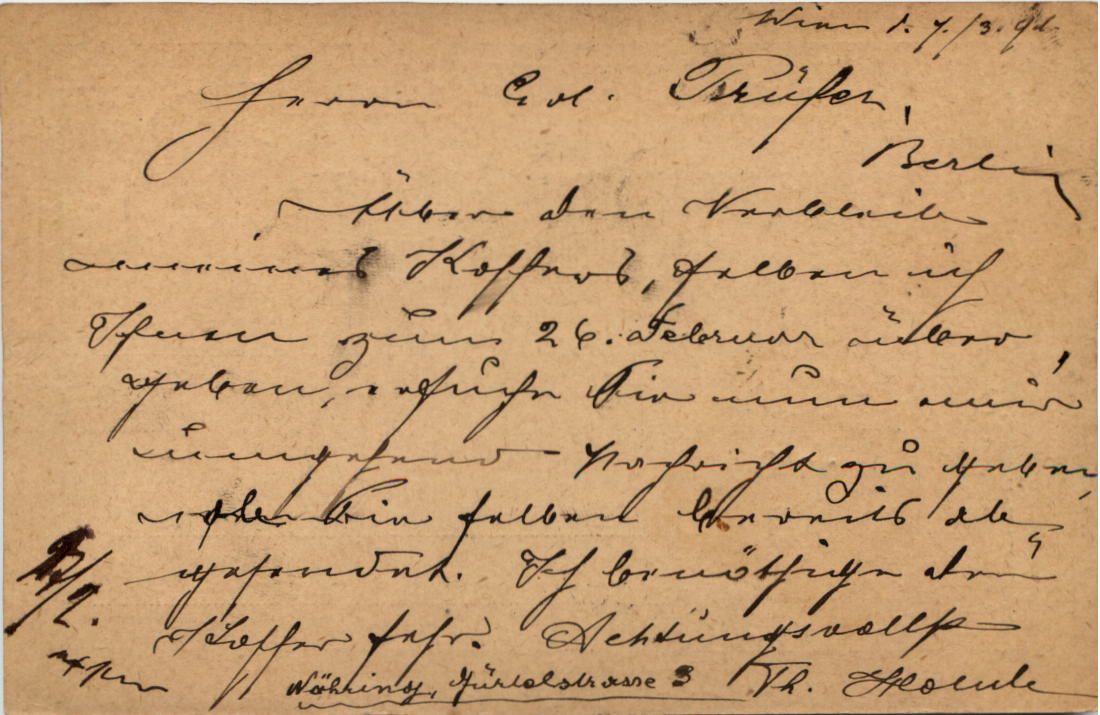 Wien d. 7./3. 92
Herrn Ed. Prüfer,
Berlin
Über den Verbleib
meines Koffers, selben ich
Ihnen zum 26. Februar über
geben, ersuche Sie nun mir
umgehend Nachricht zu geben,
ob Sie selben bereits ab
gesendet. Ich benöthige den
Koffer sehr. Achtungsvollst
Währing, Gürtelstrasse 3 Th.